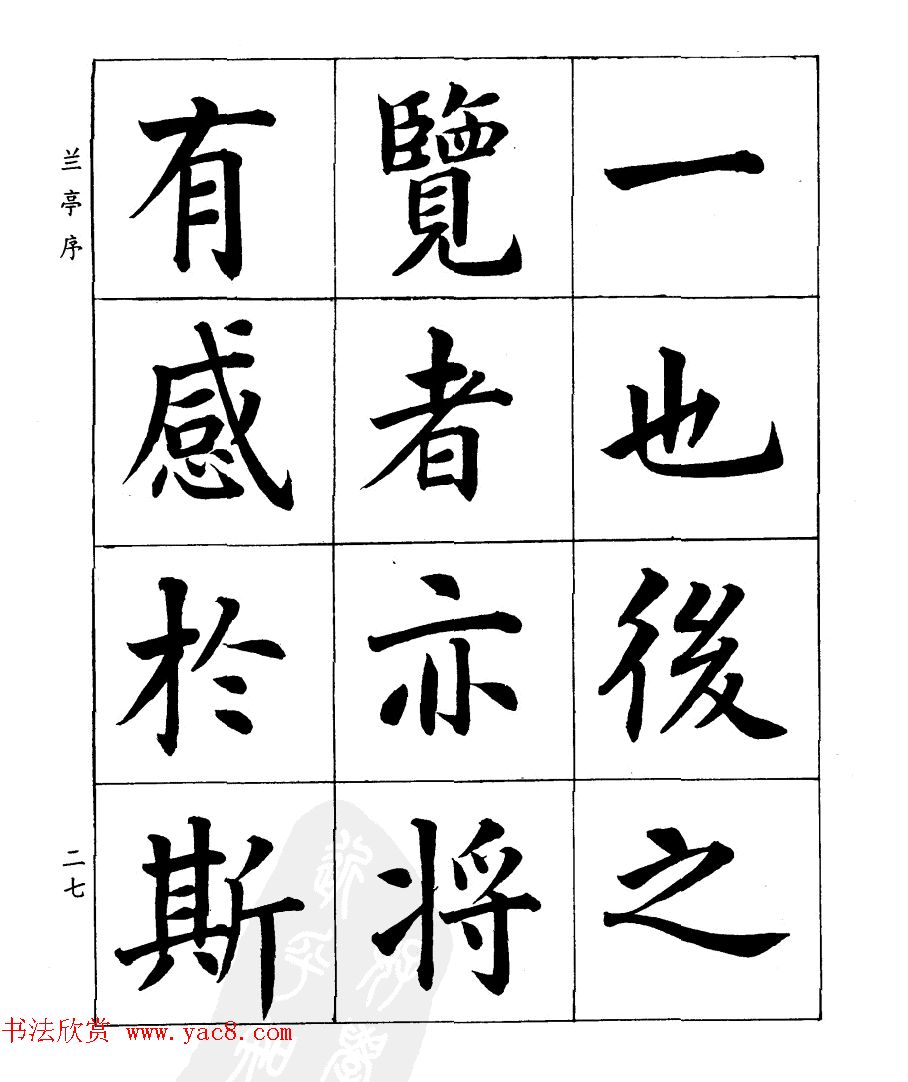 一也後之
覽者亦将
有感於斯
兰亭序
二七
书法欣赏 www.yac8.com